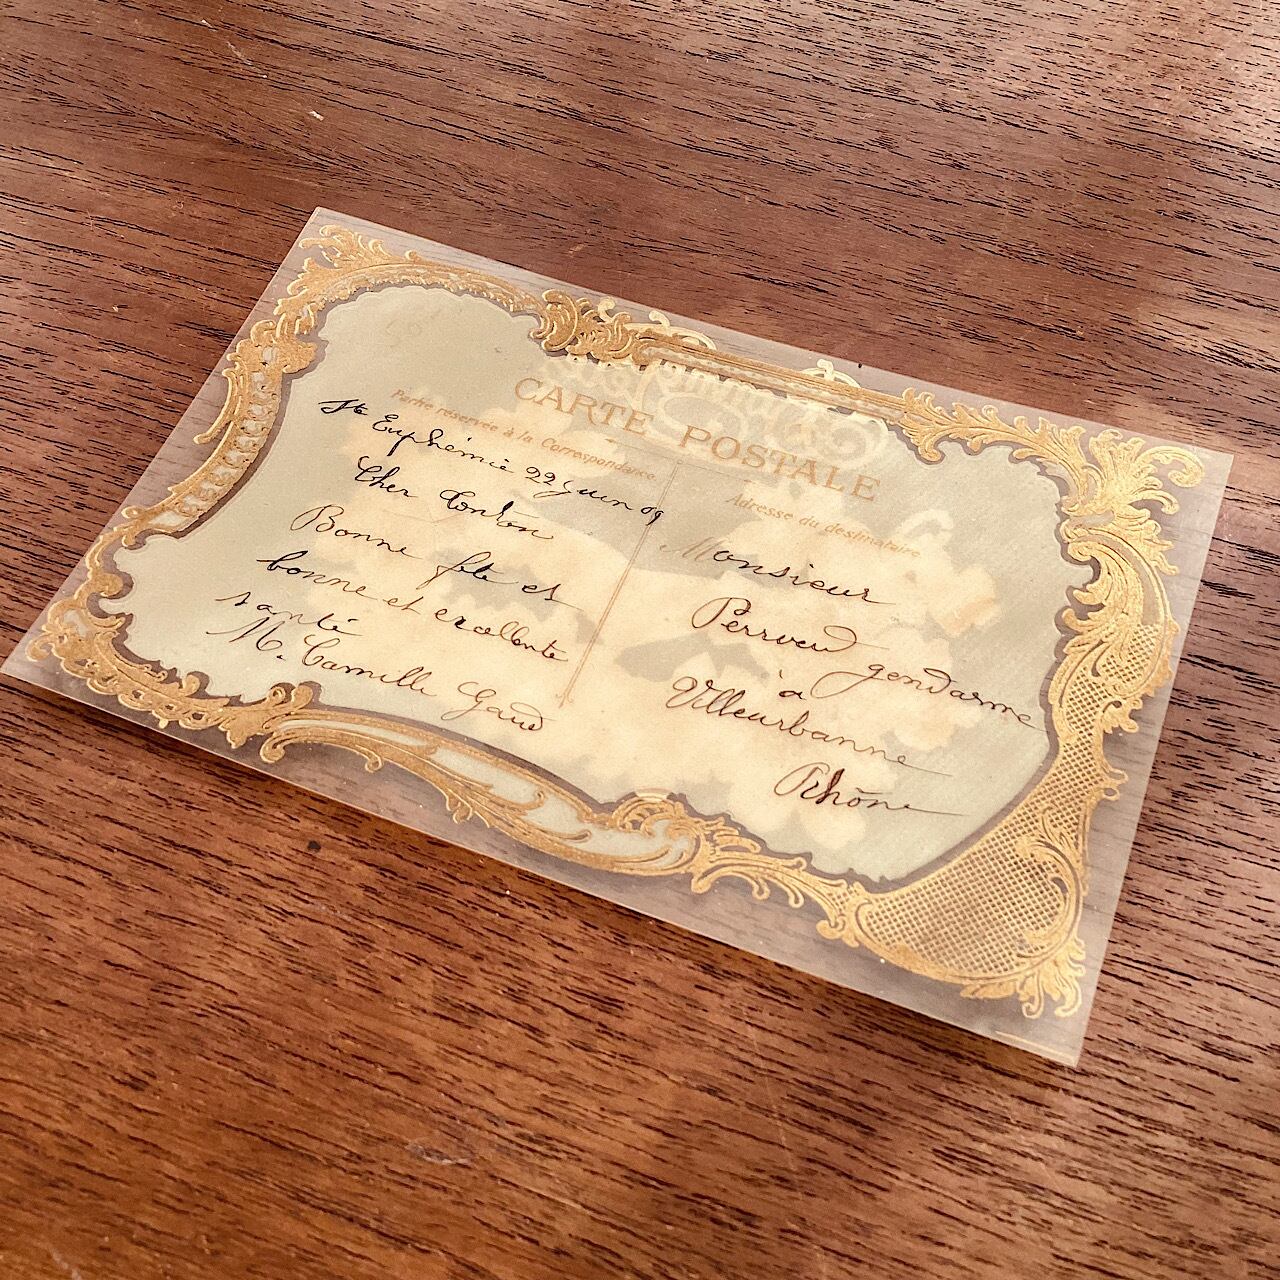 CARTE POSTALE
Partie réservée à la Correspondance
Adresse du destinataire
Ste Euphémie 22 juin 09
Cher Tonton
Bonne fête et
bonne et excellente
santé
M. Camille Gaud
Monsieur
gendarme
à
Villeurbanne
Rhône